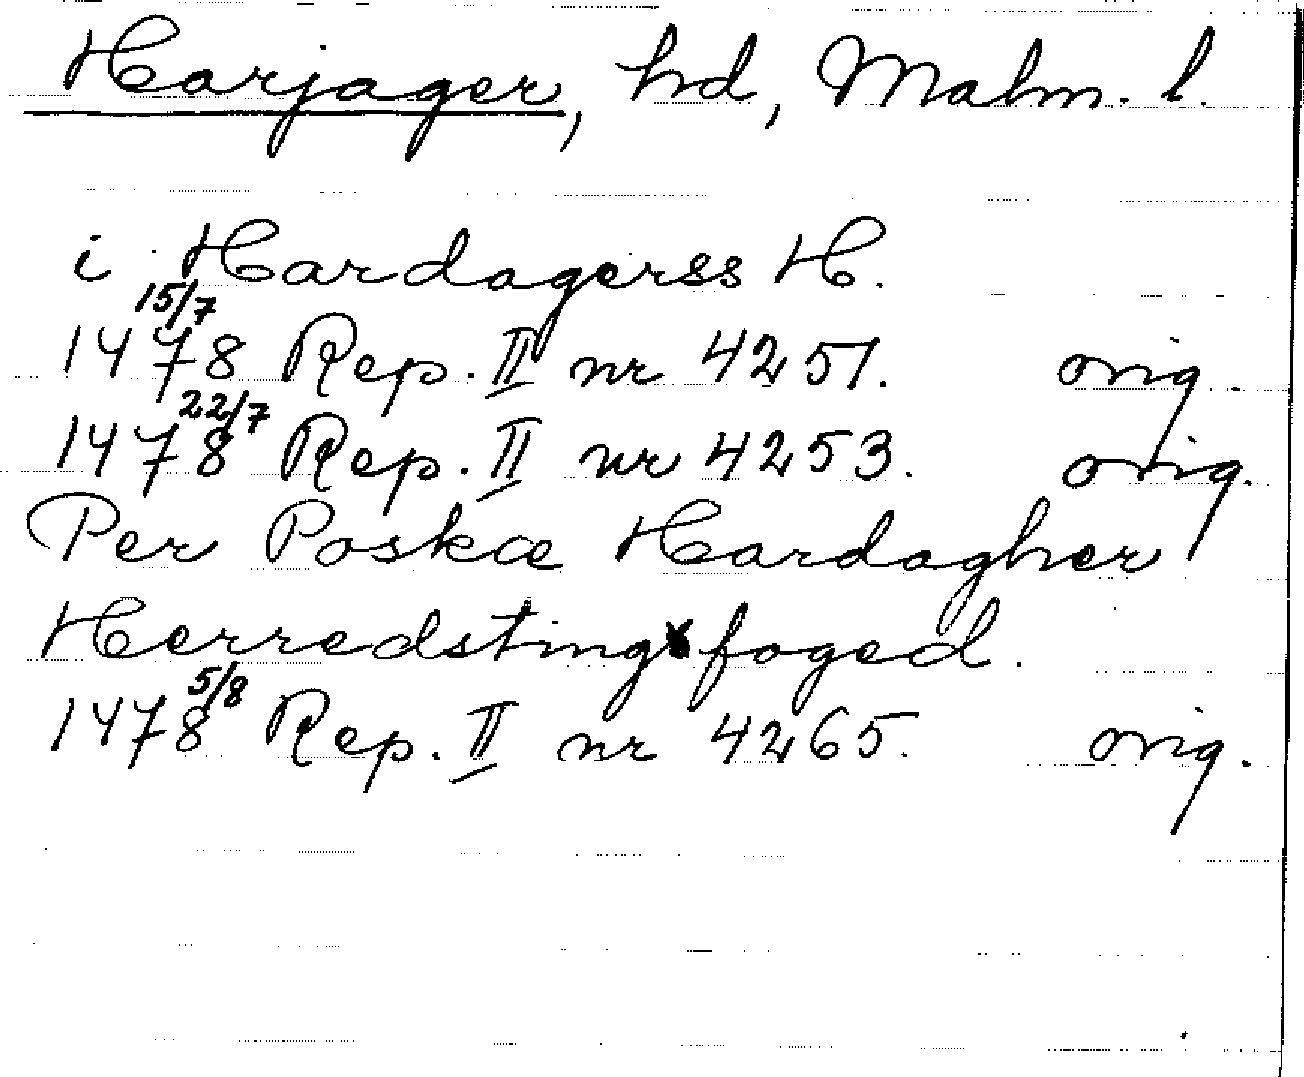 Harjager, hd, Malm. l.
i Hardagerss H.
15/7
1478 Rep. II nr 4251. orig.
22/7
1478 Rep. II nr 4253. orig.
Per Poskæ Hardagher
Herredstingsfoged.
5/8
1478 Rep. II nr 4265. orig.